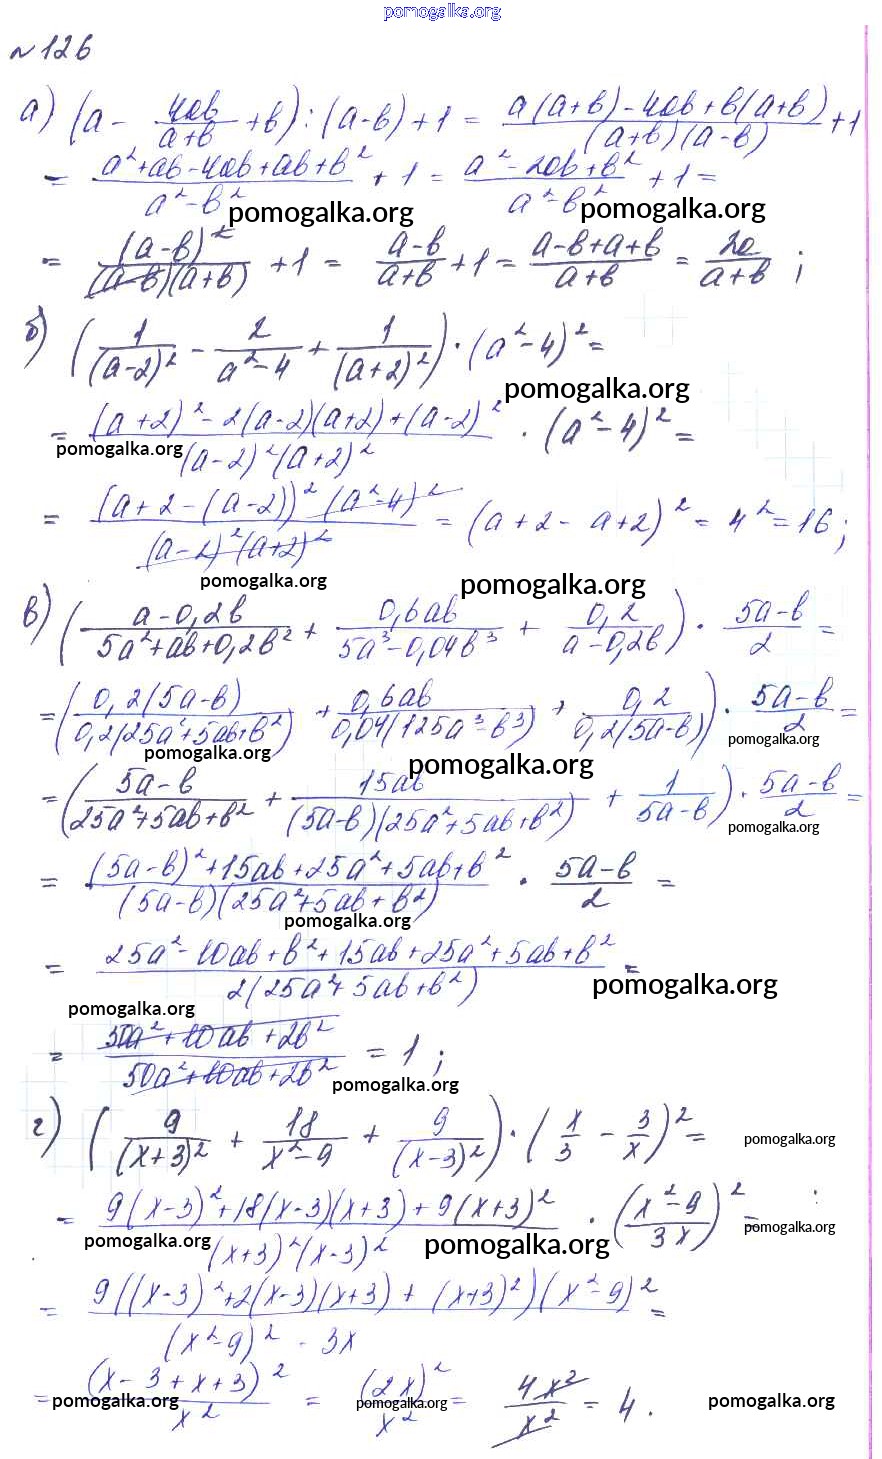 pomogalka.org
№126
а) (a - 4ab/(a+b) + b) : (a-b) + 1 = (a(a+b) - 4ab + b(a+b))/((a+b)(a-b)) + 1
= (a²+ab-4ab+ab+b²)/(a²-b²) + 1 = (a²-2ab+b²)/(a²-b²) + 1 =
pomogalka.org pomogalka.org
= (a-b)²/((a-b)(a+b)) + 1 = (a-b)/(a+b) + 1 = (a-b+a+b)/(a+b) = 2a/(a+b) ;
б) (1/(a-2)² - 2/(a²-4) + 1/(a+2)²) · (a²-4)² =
pomogalka.org
= ((a+2)² - 2(a-2)(a+2) + (a-2)²)/((a-2)²(a+2)²) · (a²-4)² =
pomogalka.org
= ((a+2-(a-2))² (a²-4)²)/((a-2)²(a+2)²) = (a+2-a+2)² = 4² = 16 ;
pomogalka.org pomogalka.org
в) ((a-0,2b)/(5a²+ab+0,2b²) + 0,6ab/(5a³-0,04b³) + 0,2/(a-0,2b)) · (5a-b)/2 =
= (0,2(5a-b)/(0,2(25a²+5ab+b²)) + 0,6ab/(0,04(125a³-b³)) + 0,2/(0,2(5a-b))) · (5a-b)/2 =
pomogalka.org pomogalka.org pomogalka.org
= ((5a-b)/(25a²+5ab+b²) + 15ab/((5a-b)(25a²+5ab+b²)) + 1/(5a-b)) · (5a-b)/2 =
pomogalka.org
= ((5a-b)²+15ab+25a²+5ab+b²)/((5a-b)(25a²+5ab+b²)) · (5a-b)/2 =
pomogalka.org
= (25a²-10ab+b²+15ab+25a²+5ab+b²)/(2(25a²+5ab+b²)) =
pomogalka.org pomogalka.org
= (50a²+10ab+2b²)/(50a²+10ab+2b²) = 1 ;
pomogalka.org
г) (9/(x+3)² + 18/(x²-9) + 9/(x-3)²) · (x/3 - 3/x)² =
pomogalka.org
= (9(x-3)²+18(x-3)(x+3)+9(x+3)²)/((x+3)²(x-3)²) · ((x²-9)/3x)² =
pomogalka.org pomogalka.org pomogalka.org
= (9((x-3)²+2(x-3)(x+3)+(x+3)²)(x²-9)²)/((x²-9)² · 3x) =
= (x-3+x+3)²/x² = (2x)²/x² = 4x²/x² = 4.
pomogalka.org pomogalka.org pomogalka.org